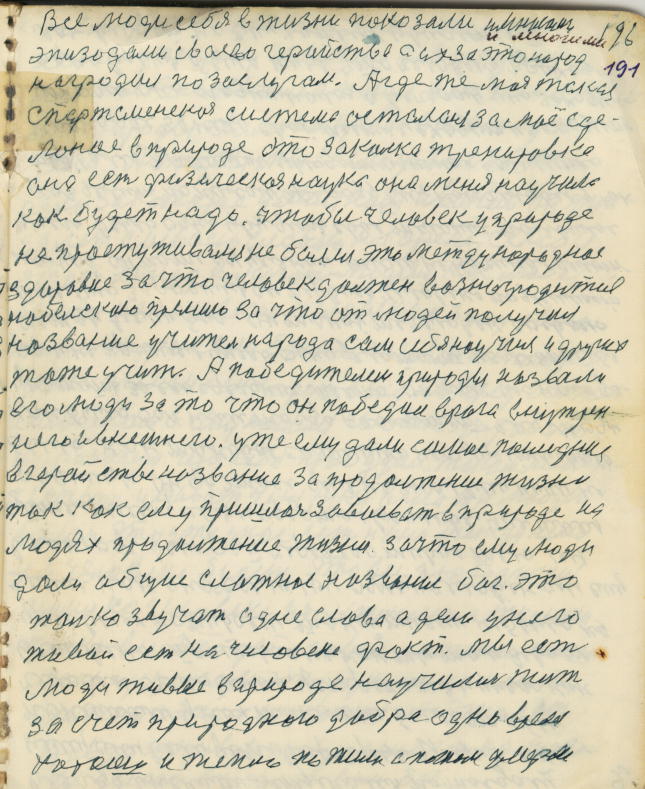 Все люди себя в жизни показали и многими 196
эпизодами своего геройства а их за это народ 191
наградил по заслугам. А где же моя такая
спортсменская система осталась за моё сде-
ланое в природе это закалка тренировка
она ест физическая наука она меня научила
как будет надо. чтобы человек у природе
не простуживался не болел это международное
здоровие за что человек должен вознаградится
нобелскою премию за что от людей получил
название учител народа сам себя научил и других
тоже учит. А победителем природы назвали
его люди за то что он победил врага внутрен-
него и внешнего. уже ему дали самое последние
в геройстве название за продолжение жизни
так как ему пришлося завоеват в природе на
людях продолжение жизни. за что ему люди
дали общие сложное название бог. это
толко звучат одне слова а дела у него
живой ест на человеке факт. мы ест
люди живые в природе научилися жит
за счет природного добра одно время
хорошо и тепло пожили а потом умерли